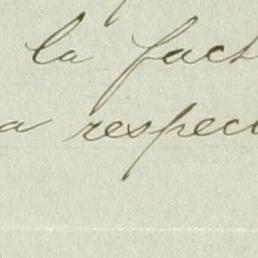 la fact
a respec